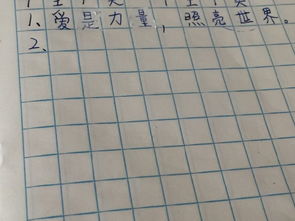 1、爱是力量，照亮世界。
2、